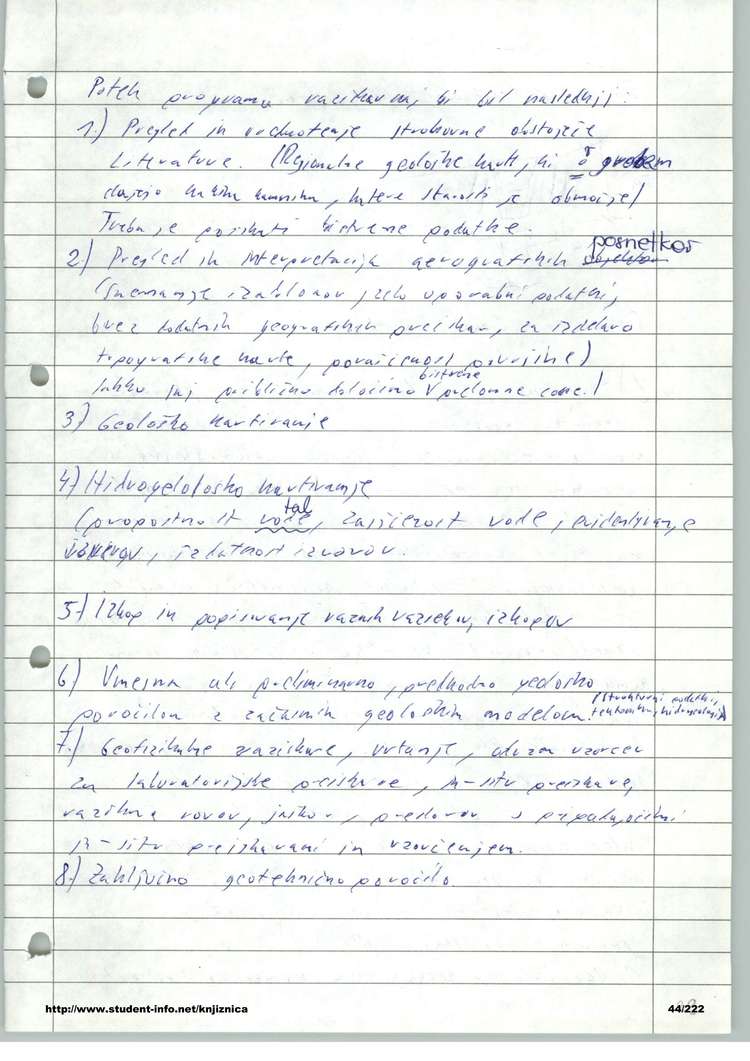 Potek programa raziskav naj bi bil naslednji:
1.) Pregled in vrednotenje strokovne obstoječe
Literature. (Regionalne geološke karte, ki v grobem
dajejo kakšna kamnina, katere starosti je območje)
Treba je poiskati bistvene podatke.
2.) Pregled in interpretacija aerografskih posnetkov
(Snemanje iz zelo uporabni podatki,
brez dodatnih geografskih preiskav, za izdelavo
topografske karte, poraščenost površine)
lahko tudi približno določimo bistvene prelomne cone.)
3.) Geološko kartiranje
4.) Hidrogeološko kartiranje
(propustnost tal, zaščitenost vode, evidentiranje
izvirov, izdatnost izvorov.
5.) Izkop in popisovanje raznih razrezov, izkopov
6.) Vmesna ali preliminarno, predhodno geološko
poročilom z začasnim geološkim modelom. (strukturni podatki,
tektonika, hidrogeologija)
7.) Geofizikalne raziskave, vrtanje, odvzem vzorcev
za laboratorijske preiskave, in-situ preiskave,
rovov, jaškov, predorov s pripadajočimi
in-situ preiskavami in vzorčenjem.
8.) Zaključno geotehnično poročilo.
http://www.student-info.net/knjiznica 44/222